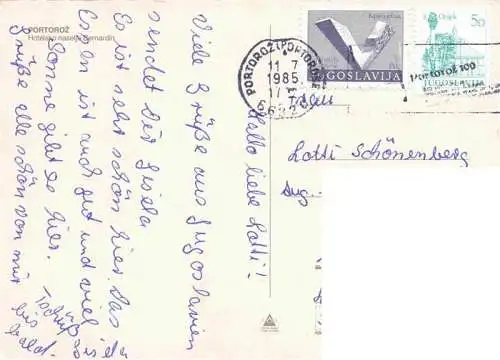 PORTOROŽ
Hotelsko naselje Bernardin
Hallo liebe Lotti!
Viele Grüße aus Jugoslawien
sendet Dir Gisela
Es ist sehr schön hier. Das
Essen ist auch gut und viel
Sonne gibt es hier.
Grüße alle schön von mir
bis
bald.
PORTOROŽ (PORTOR
11 7
1985
17
JUGOSLAVIJA
Osijek
50
JUGOSLAVIJA
Frau
Lotti Schönenberg